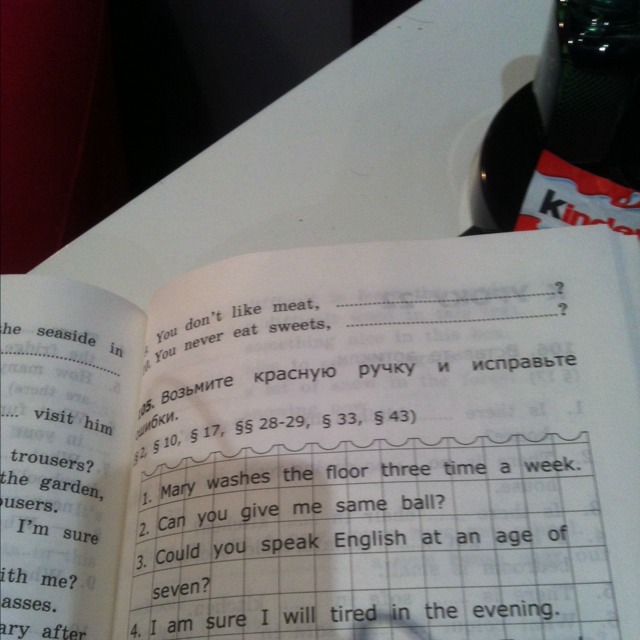 Kinder
he seaside in
... visit him
trousers?
the garden,
users.
I'm sure
ith me?
asses.
ary after
You don't like meat, ..............................?
0. You never eat sweets, ..............................?
105. Возьмите красную ручку и исправьте
ошибки.
§ 2, § 10, § 17, §§ 28-29, § 33, § 43)
1. Mary washes the floor three time a week.
2. Can you give me same ball?
3. Could you speak English at an age of
seven?
4. I am sure I will tired in the evening.